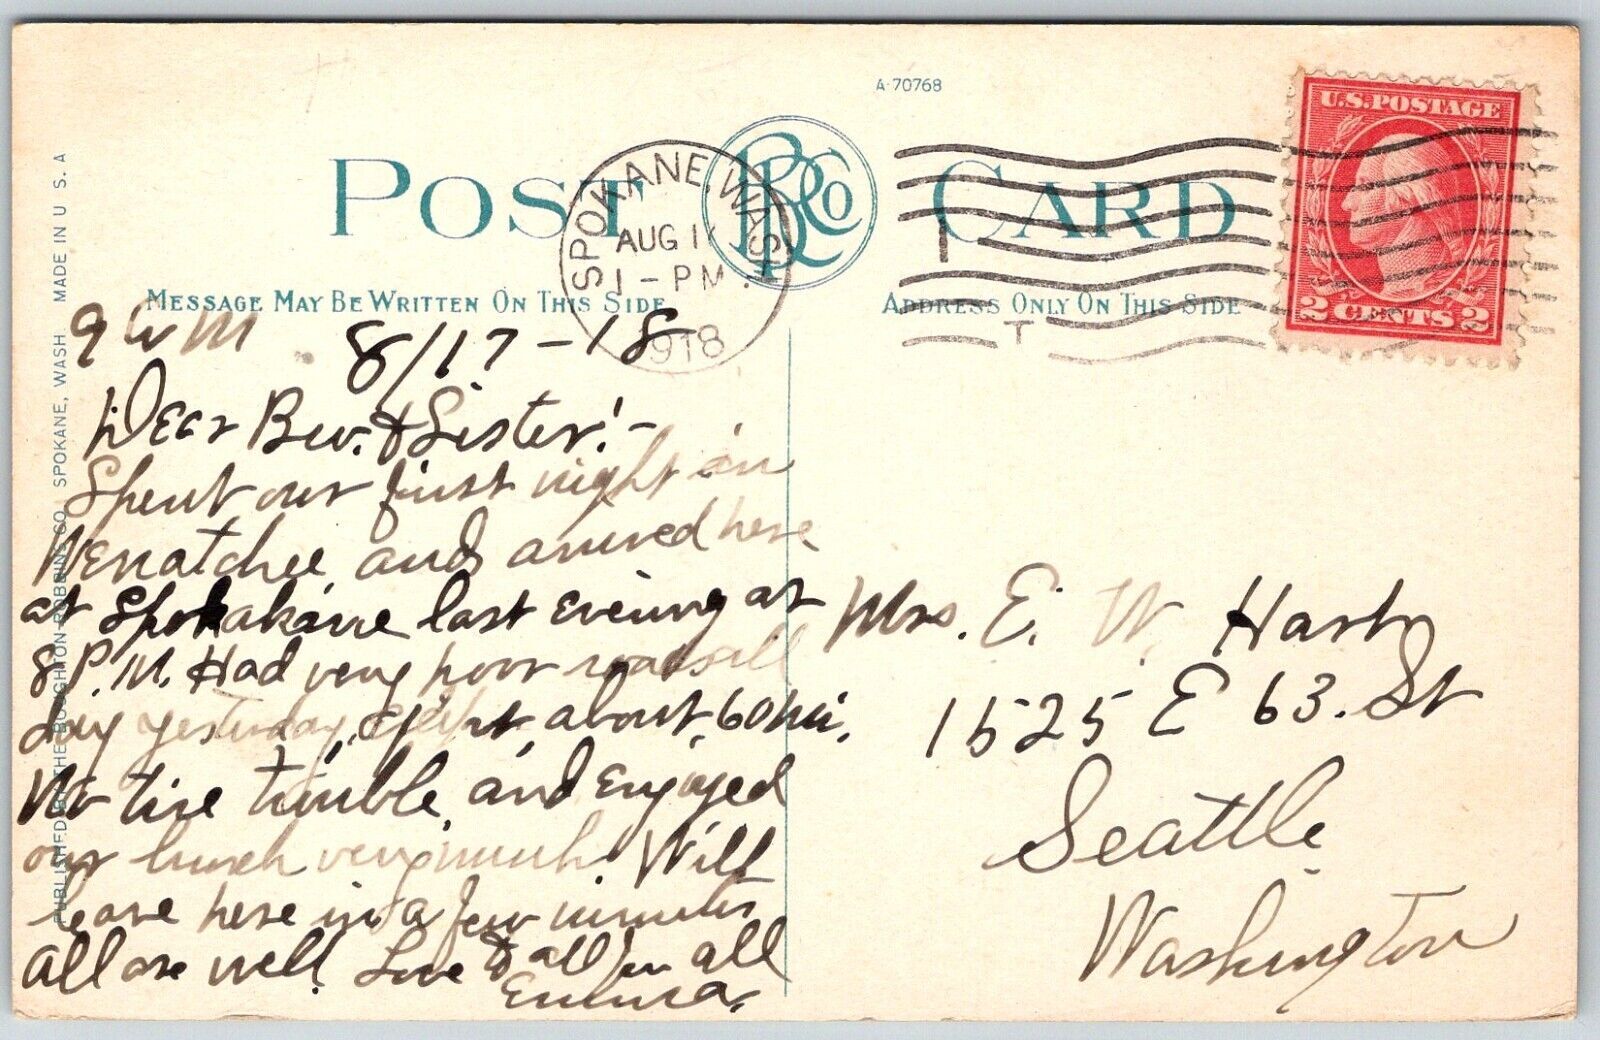 A-70768
POST CARD
BRCo
SPOKANE, WASH.
AUG 1
1-PM
1918
U.S. POSTAGE
2 CENTS 2
MESSAGE MAY BE WRITTEN ON THIS SIDE
ADDRESS ONLY ON THIS SIDE
PUBLISHED BY THE BOUGHTON ROBBINS CO. SPOKANE, WASH MADE IN U. S. A
8/17-18
Dear Bro. & Sister!-
Spent our first night in
Wenatchee, and arrived here
at Spokakane last evening at
8 P.M. Had very poor roads all
day yesterday, except about 60 mi.
No tire trouble, and enjoyed
our lunch very much. Will
leave here in a few minutes
All are well. Love to all from all
Emma.
Mrs. E. W. Harby
1525 E 63. St
Seattle
Washington